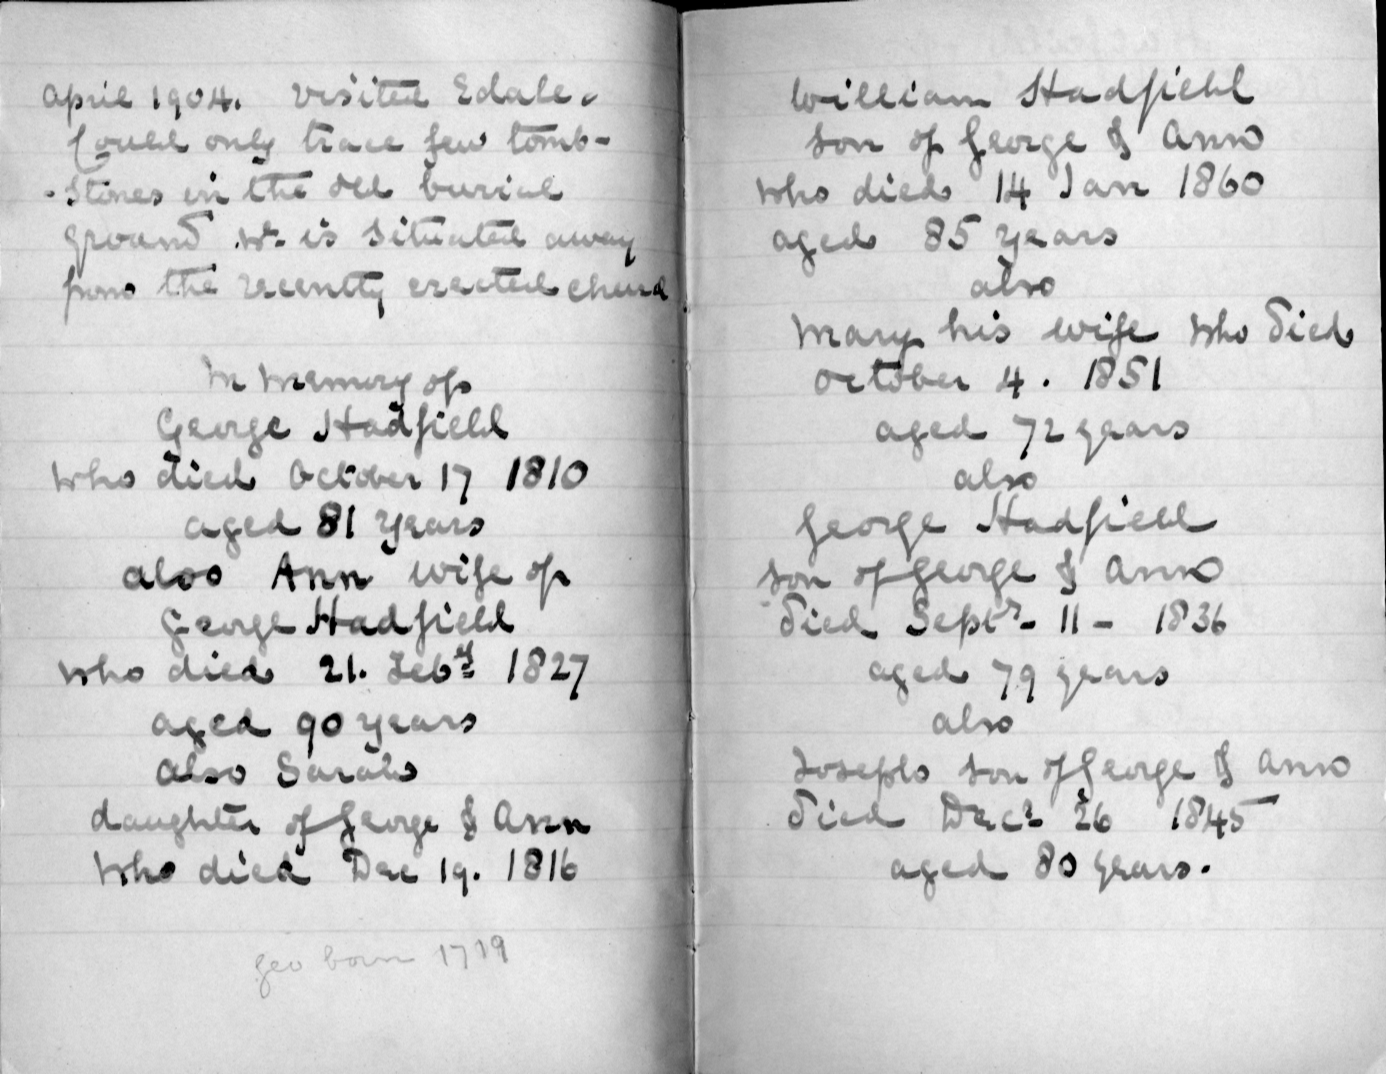 April 1904. Visited Edale.
Could only trace few tomb-
-stones in the old burial
ground wh is situated away
from the recently erected church
In memory of
George Hadfield
who died October 17 1810
aged 81 years
also Ann wife of
George Hadfield
who died 21. Feby 1827
aged 90 years
Also Sarah
daughter of George & Ann
who died Dec 19. 1816
geo born 1719
William Hadfield
son of George & Ann
who died 14 Jan 1860
aged 85 years
also
Mary his wife who died
October 4. 1851
aged 72 years
also
George Hadfield
son of George & Ann
died Septr - 11 - 1836
aged 79 years
also
Joseph son of George & Ann
died Decr 26 1845
aged 80 years.